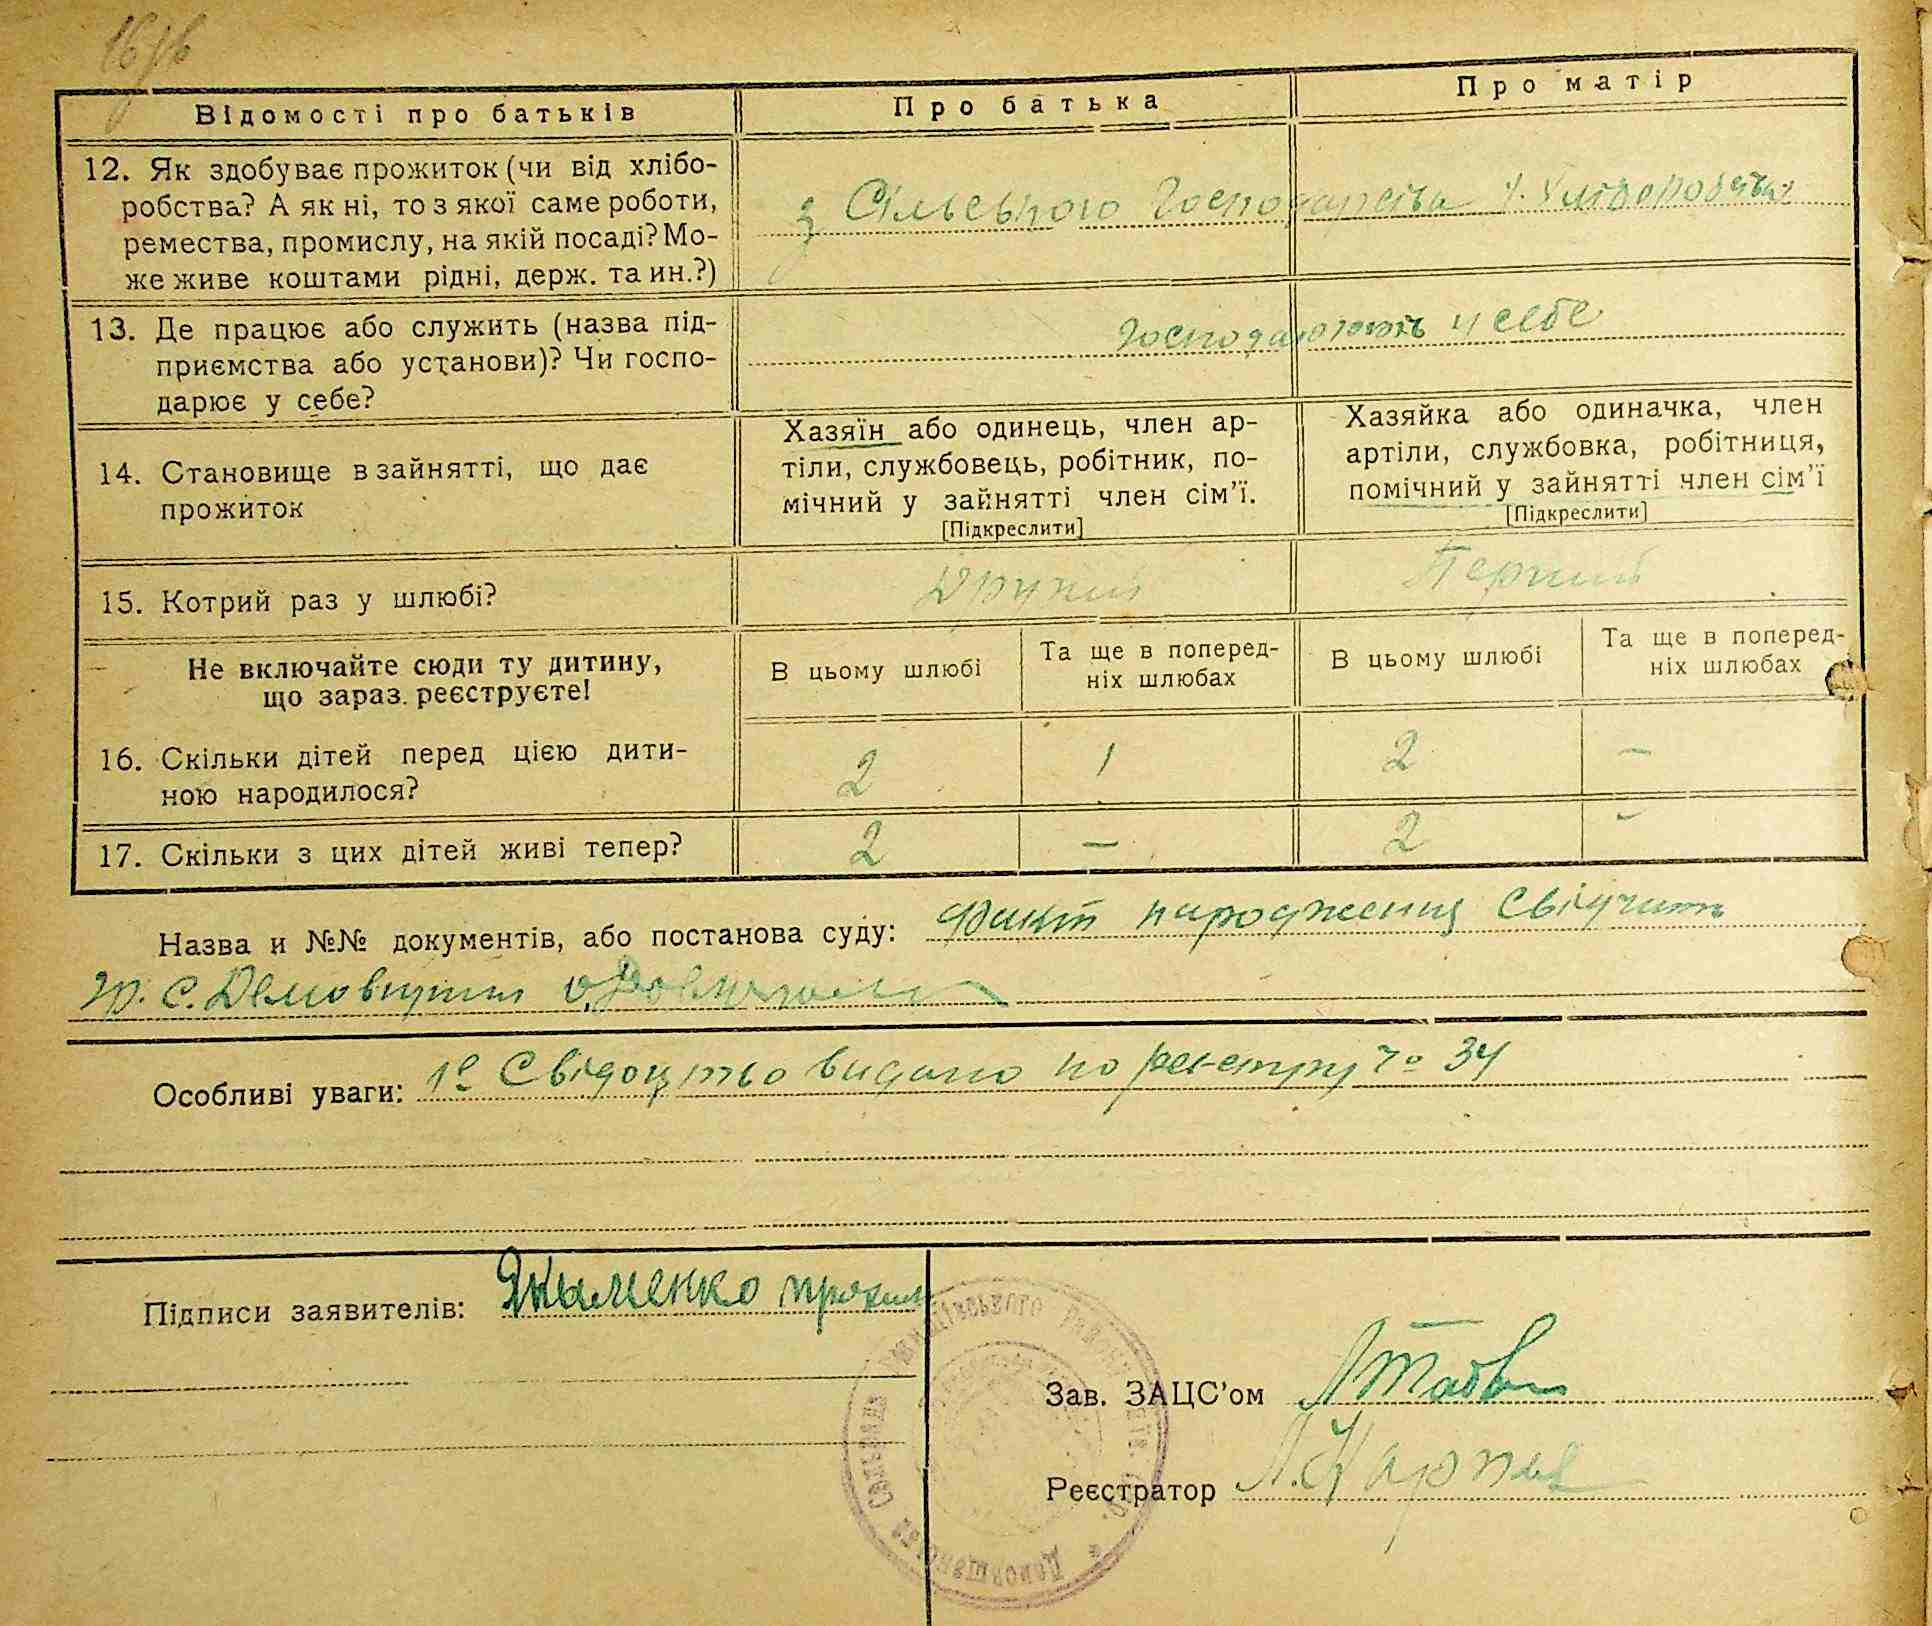 16зв
Відомості про батьків
Про батька
Про матір
12. Як здобуває прожиток (чи від хлібо-
робства? А як ні, то з якої саме роботи,
ремества, промислу, на якій посаді? Мо-
же живе коштами рідні, держ. та ин.?)
з Сільського Господарства
13. Де працює або служить (назва під-
приємства або установи)? Чи госпо-
дарює у себе?
Господарюють у себе
14. Становище в зайнятті, що дає
прожиток
Хазяїн або одинець, член ар-
тіли, службовець, робітник, по-
мічний у зайнятті член сім'ї.
[Підкреслити]
Хазяйка або одиначка, член
артіли, службовка, робітниця,
помічний у зайнятті член сім'ї
[Підкреслити]
15. Котрий раз у шлюбі?
Другий
Перший
Не включайте сюди ту дитину,
що зараз реєструєте!
В цьому шлюбі
Та ще в поперед-
ніх шлюбах
В цьому шлюбі
Та ще в поперед-
ніх шлюбах
16. Скільки дітей перед цією дити-
ною народилося?
2
1
2
–
17. Скільки з цих дітей живі тепер?
2
–
2
–
Назва и №№ документів, або постанова суду: Факт народження Свідчить
гр. с.
Особливі уваги: 1º Свідоцтво видано по реєстру 34
Підписи заявителів: Якыменко
Зав. ЗАЦС'ом
Реєстратор